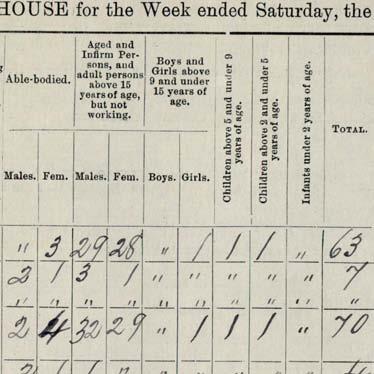 HOUSE for the Week ended Saturday, the
Able-bodied.
Aged and Infirm Persons, and adult persons above 15 years of age, but not working.
Boys and Girls above 9 and under 15 years of age.
Children above 5 and under 9 years of age.
Children above 2 and under 5 years of age.
Infants under 2 years of age.
TOTAL.
Males. Fem. Males. Fem. Boys. Girls.
" 3 29 28 " 1 1 1 " 63
2 1 3 1 " " " " " 7
" " " " " " " " " "
2 4 32 29 " 1 1 1 " 70